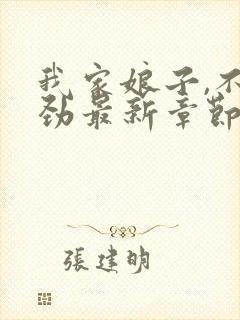 我家娘子,不
劲最新章節
張建明